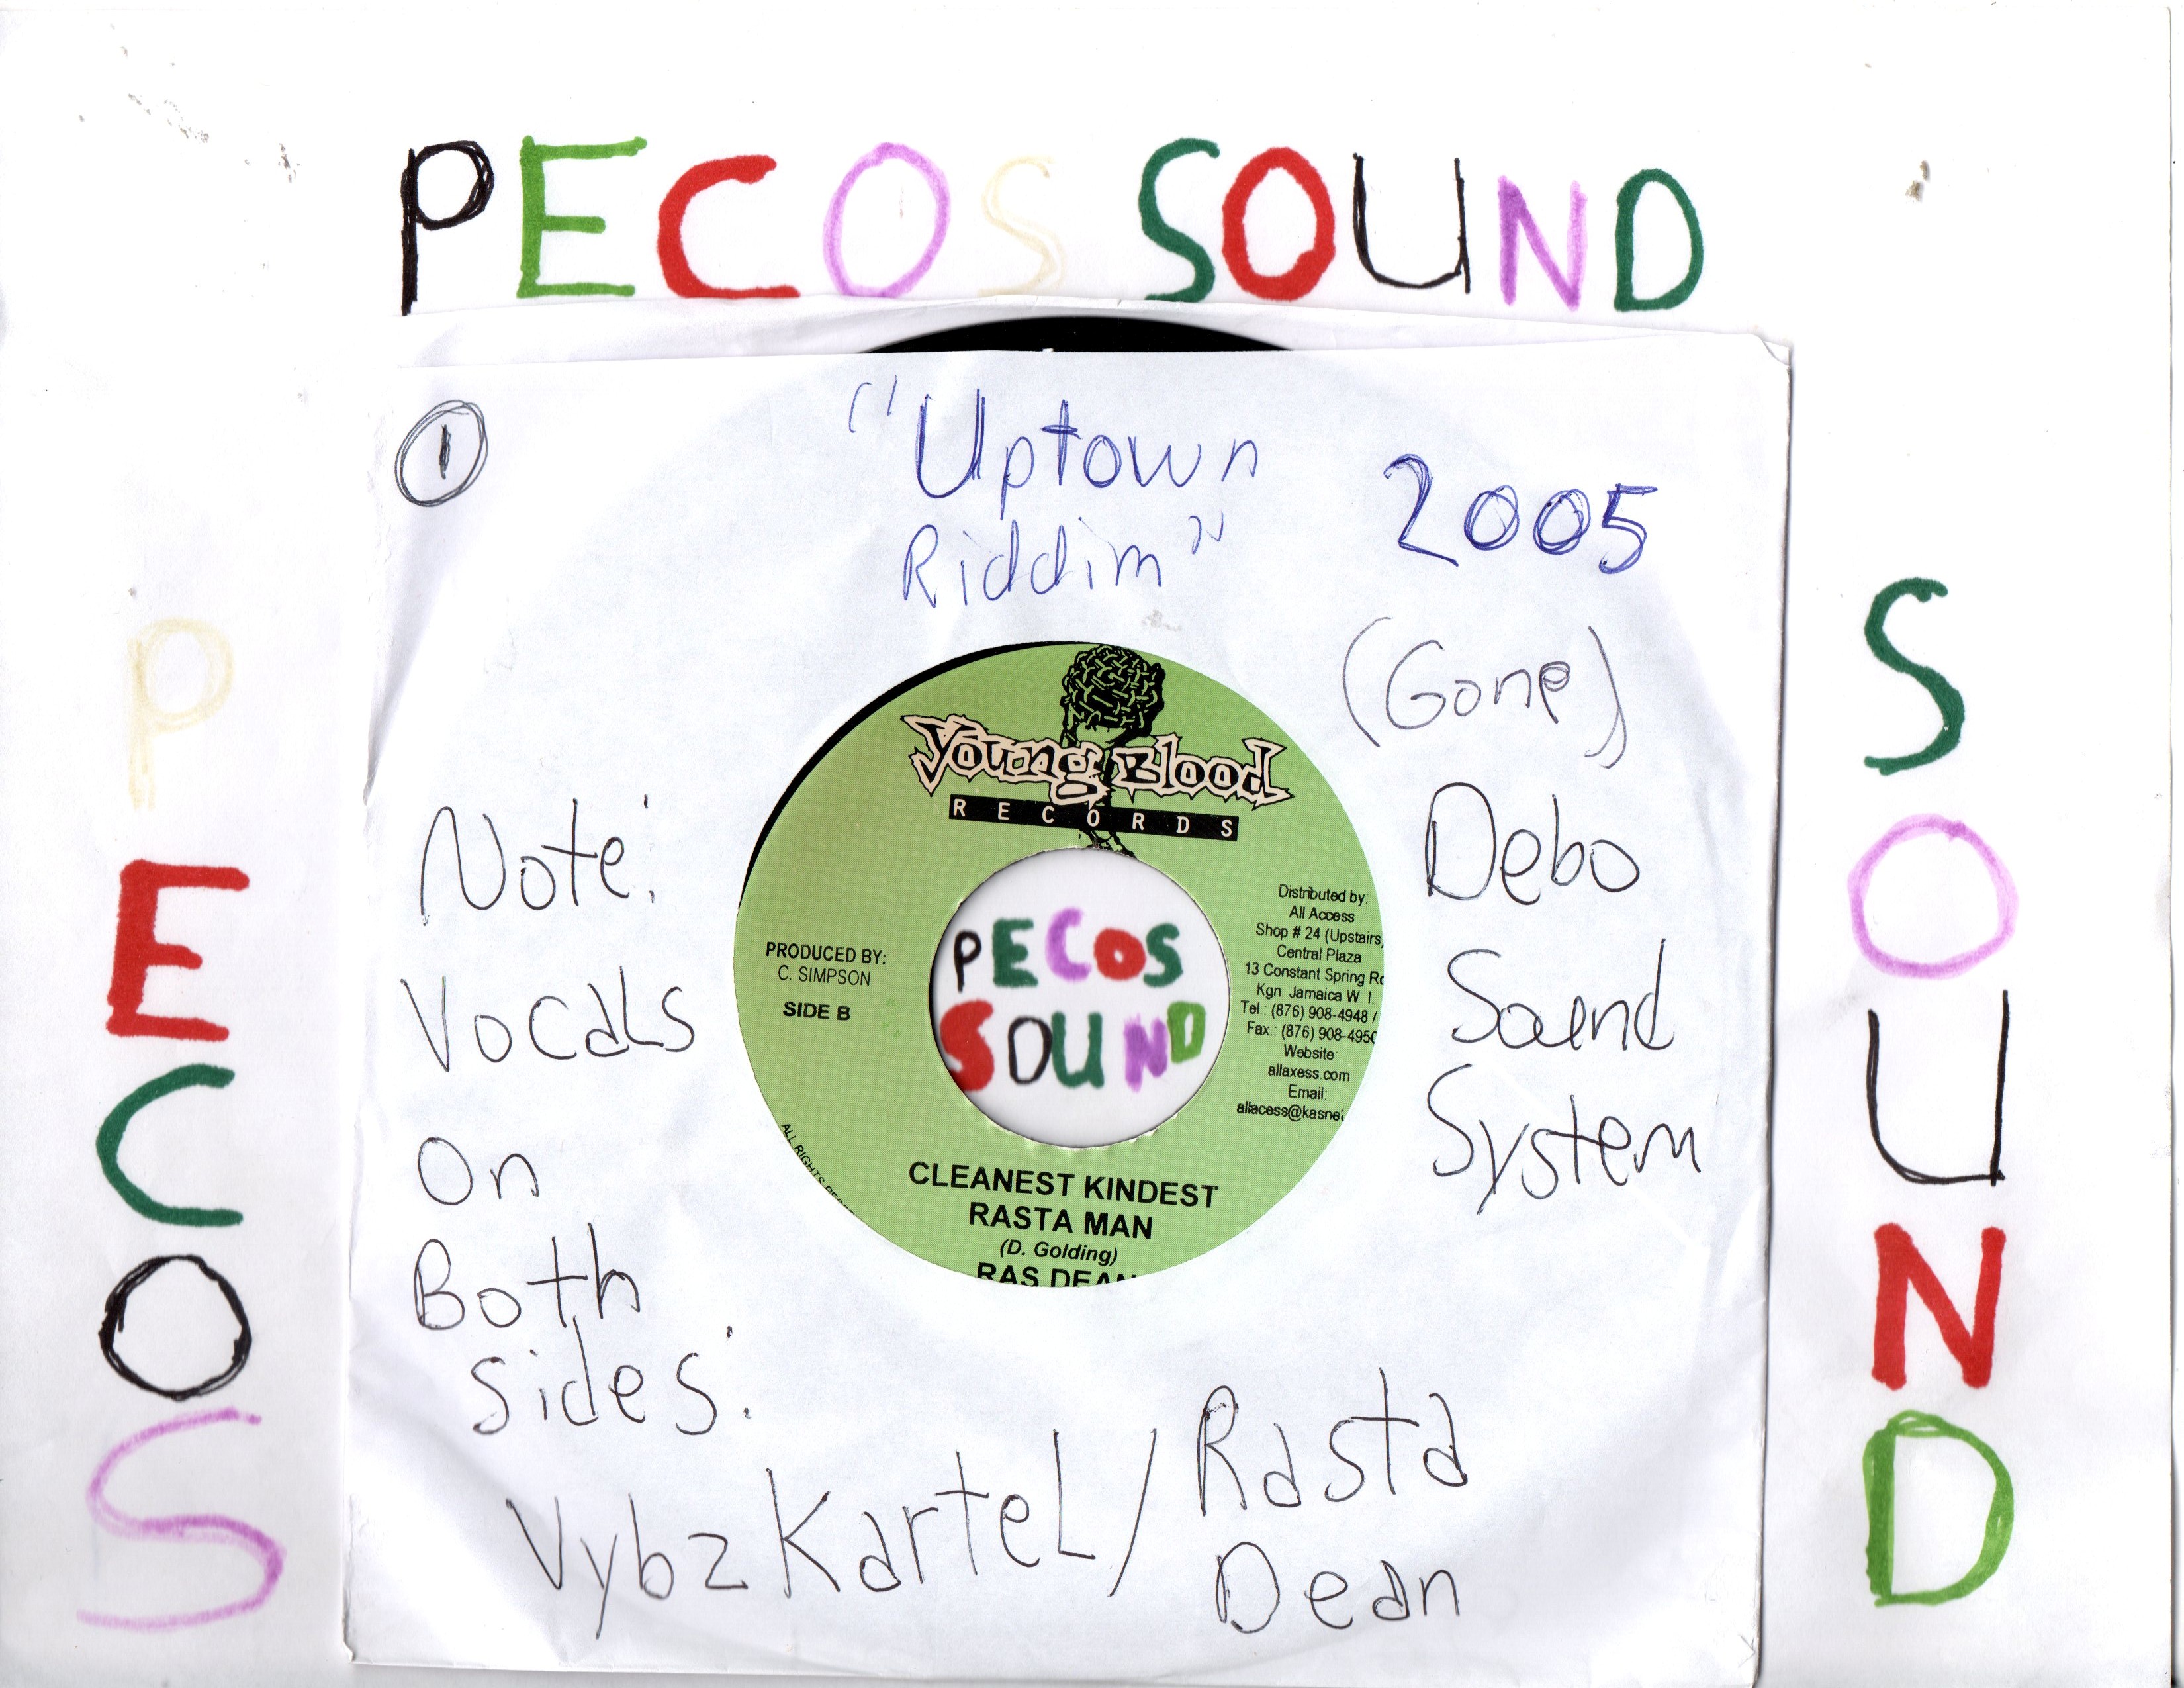 PECOS SOUND
1
"Uptown
Riddim"
2005
(Gone)
Debo
Sound
System
Note:
Vocals
On
Both
sides:
Vybz Kartel/Rasta
Dean
Young Blood
RECORDS
PRODUCED BY:
C. SIMPSON
SIDE B
PECOS
SOUND
Distributed by:
All Access
Shop # 24 (Upstairs
Central Plaza
13 Constant Spring
Kgn. Jamaica W. I.
Tel.: (876) 908-4948 /
Fax.: (876) 908-495
Website:
allaxess.com
Email:
allacess@kasne
ALL RIGHTS
CLEANEST KINDEST
RASTA MAN
(D. Golding)
RAS DEAN
PECOS
SOUND